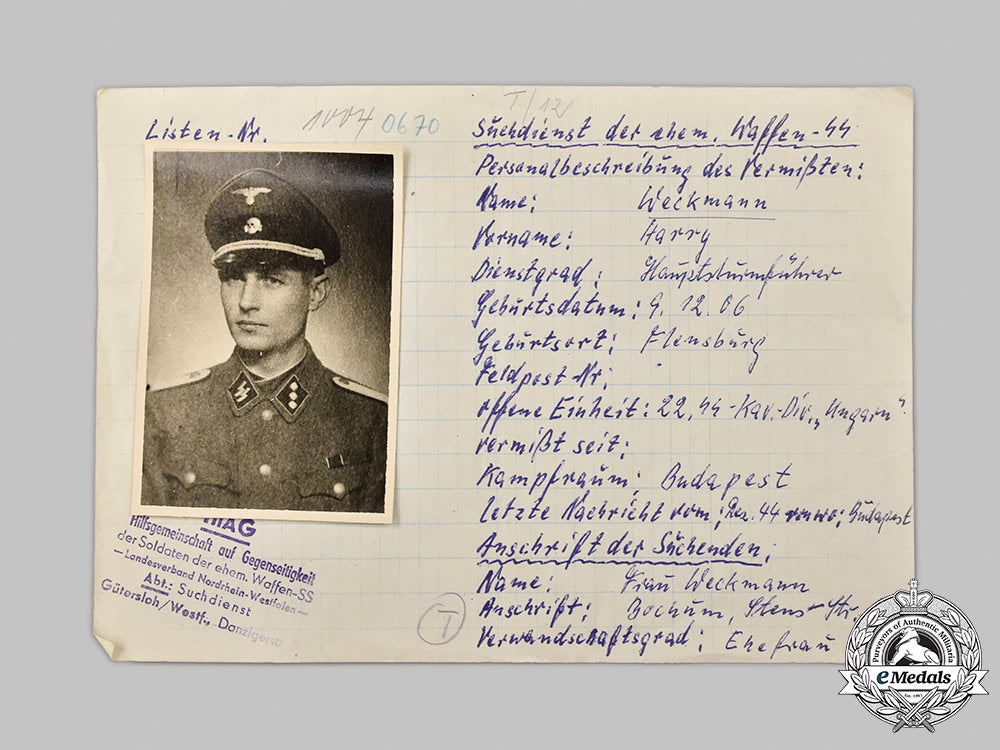 Listen-Nr. 1004 0670
T/12
Suchdienst der ehem. Waffen-SS
Personalbeschreibung des Vermißten:
Name: Weckmann
Vorname: Harry
Dienstgrad: Hauptsturmführer
Geburtsdatum: 9. 12. 06
Geburtsort: Flensburg
Feldpost Nr:
offene Einheit: 22. SS-Kav.-Div. „Ungarn"
vermißt seit:
Kampfraum: Budapest
letzte Nachricht vom: Dez. 44 von wo: Budapest
Anschrift der Suchenden:
Name: Frau Weckmann
Anschrift: Bochum, Str.
Verwandschaftsgrad: Ehefrau
T
HIAG
Hilfsgemeinschaft auf Gegenseitigkeit
der Soldaten der ehem. Waffen-SS
— Landesverband Nordrhein-Westfalen —
Abt.: Suchdienst
Gütersloh/Westf., Danzigerstr.
Purveyors of Authentic Militaria
eMedals
Est. 1967